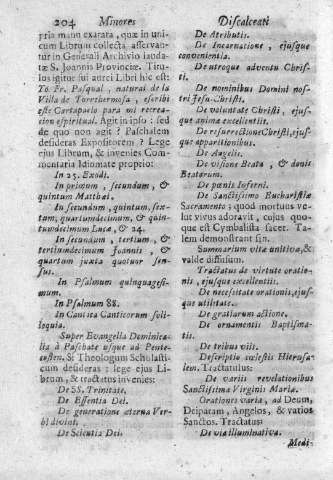 204 Minores
pria manu exarata, quæ in unicum
Librum collecta asservantur
in Generali Archivio laudatæ
S. Joannis Provinciæ. Titulus
igitur sui aurei Libri hic est:
Yo Fr. Pasqual, natural de la
Villa de Torrehermosa, escribi
este Cartapacio para mi recreacion
espiritual. Agit in ipso: sed
de quo non agit? Paschalem
desideras Expositorem? Lege
ejus Librum, & invenies Commentaria
Idiomate proprio:
In 25. Exodi.
In primum, secundum, &
quintum Matthæi.
In secundum, quintum, sextum,
quartumdecimum, & quintumdecimum
Lucæ, & 24.
In secundum, tertium, &
tertiumdecimum Joannis, &
quartum juxta quotuor sensus.
In Psalmum quinquagesimum.
In Psalmum 88.
In Cantica Canticorum soliloquia.
Super Evangelia Dominicalia
à Paschate usque ad Pentecosten.
Si Theologum Scholasticum
desideras: lege ejus Librum,
& tractatus invenies:
De SS. Trinitate.
De Essentia Dei.
De generatione æterna Verbi
divini.
De Scientia Dei.
Discalceati
De Atributis.
De Incarnatione, ejusque
convenientia.
De utroque adventu Christi.
De nominibus Domini nostri
Jesu Christi.
De voluntate Christi, ejusque
anima excellentiis.
De resurrectione Christi, ejusque
apparitionibus.
De Angelis.
De visione Beata, & donis
Beatorum.
De pœnis Inferni.
De Sanctissimo Eucharistiæ
Sacramento: quod mortuus velut
vivus adoravit, cujus quoque
est Cymbalista sacer. Talem
demonstrant sin.
Summarium vitæ unitivæ, &
valde diffusum.
Tractatus de virtute orationis,
ejusque excellentiis.
De necessitate orationis, ejusque
utilitate.
De gratiarum actione.
De ornamentis Baptismatis.
De tribus viis.
Descriptio cœlestis Hierusalem.
Tractatulus:
De variis revelationibus
Sanctissimæ Virginis Mariæ.
Orationes varia, ad Deum,
Deiparam, Angelos, & varios
Sanctos. Tractatus:
De via illuminativa.
Medi-